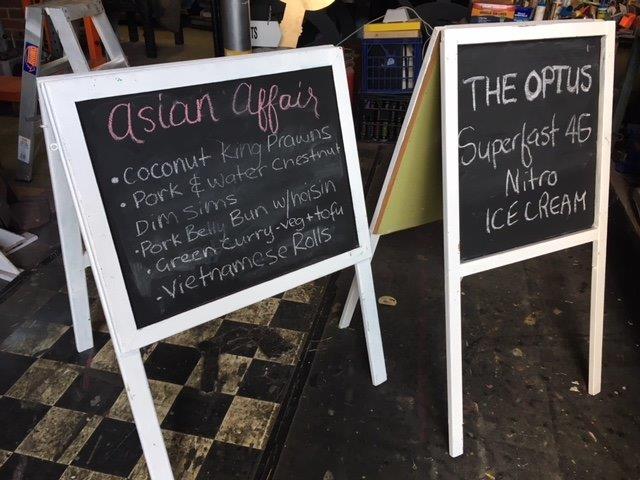 Asian Affair
• Coconut King Prawns
• Pork & Water Chestnut
Dim Sims
• Pork Belly Bun w/hoisin
• Green Curry-veg+tofu
• Vietnamese Rolls
THE OPTUS
Superfast 4G
Nitro
ICE CREAM